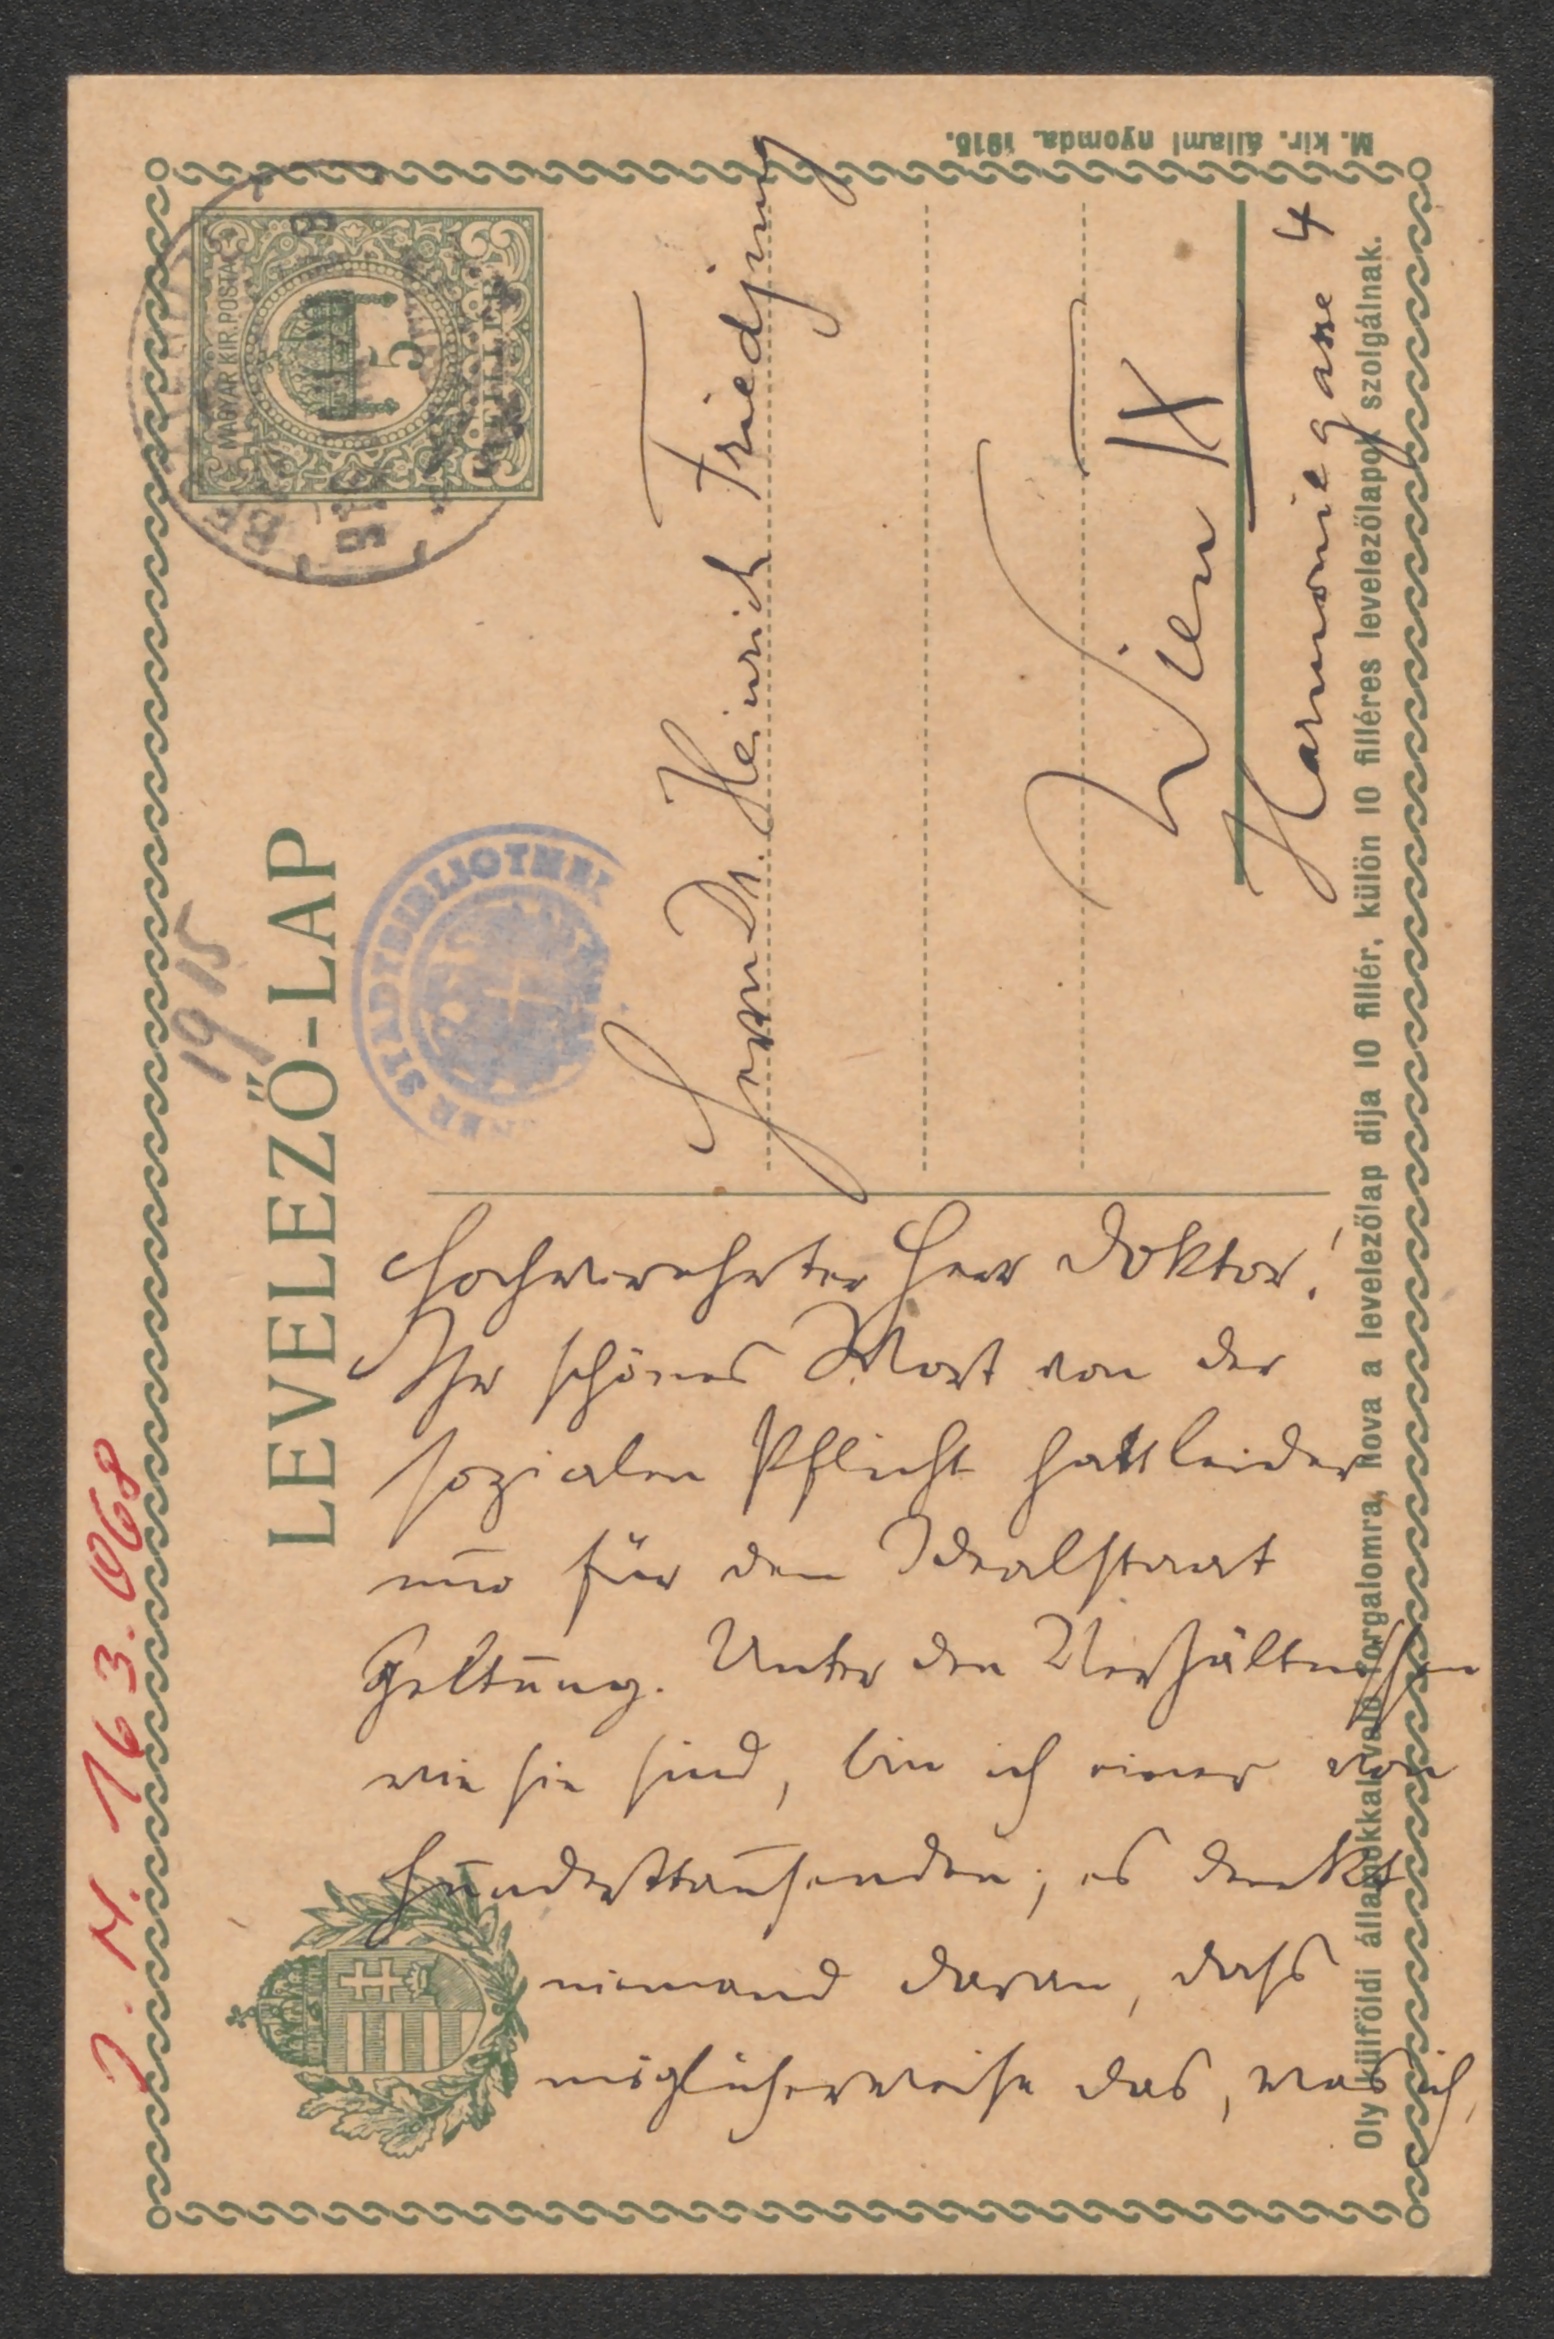 J. N. 163.068
1915
LEVELEZŐ-LAP
MAGYAR KIR. POSTA
5
FILLÉR
915
STADTBIBLIOTHEK
Herrn Dr. Heinrich Friedjung
Wien IX
Harmoniegasse 4
Hochverehrter Herr Doktor!
Ihr schönes Wort von der
sozialen Pflicht hat leider
nur für den Idealstaat
Geltung. Unter den Verhältnissen
wie sie sind, bin ich einer von
Hunderttausenden; es denkt
niemand daran, dass
möglicherweise das, was ich,
Oly külföldi államokkal való forgalomra, hova a levelezőlap dija 10 fillér, külön 10 filléres levelezőlapok szolgálnak.
M. kir. állami nyomda, 1915.